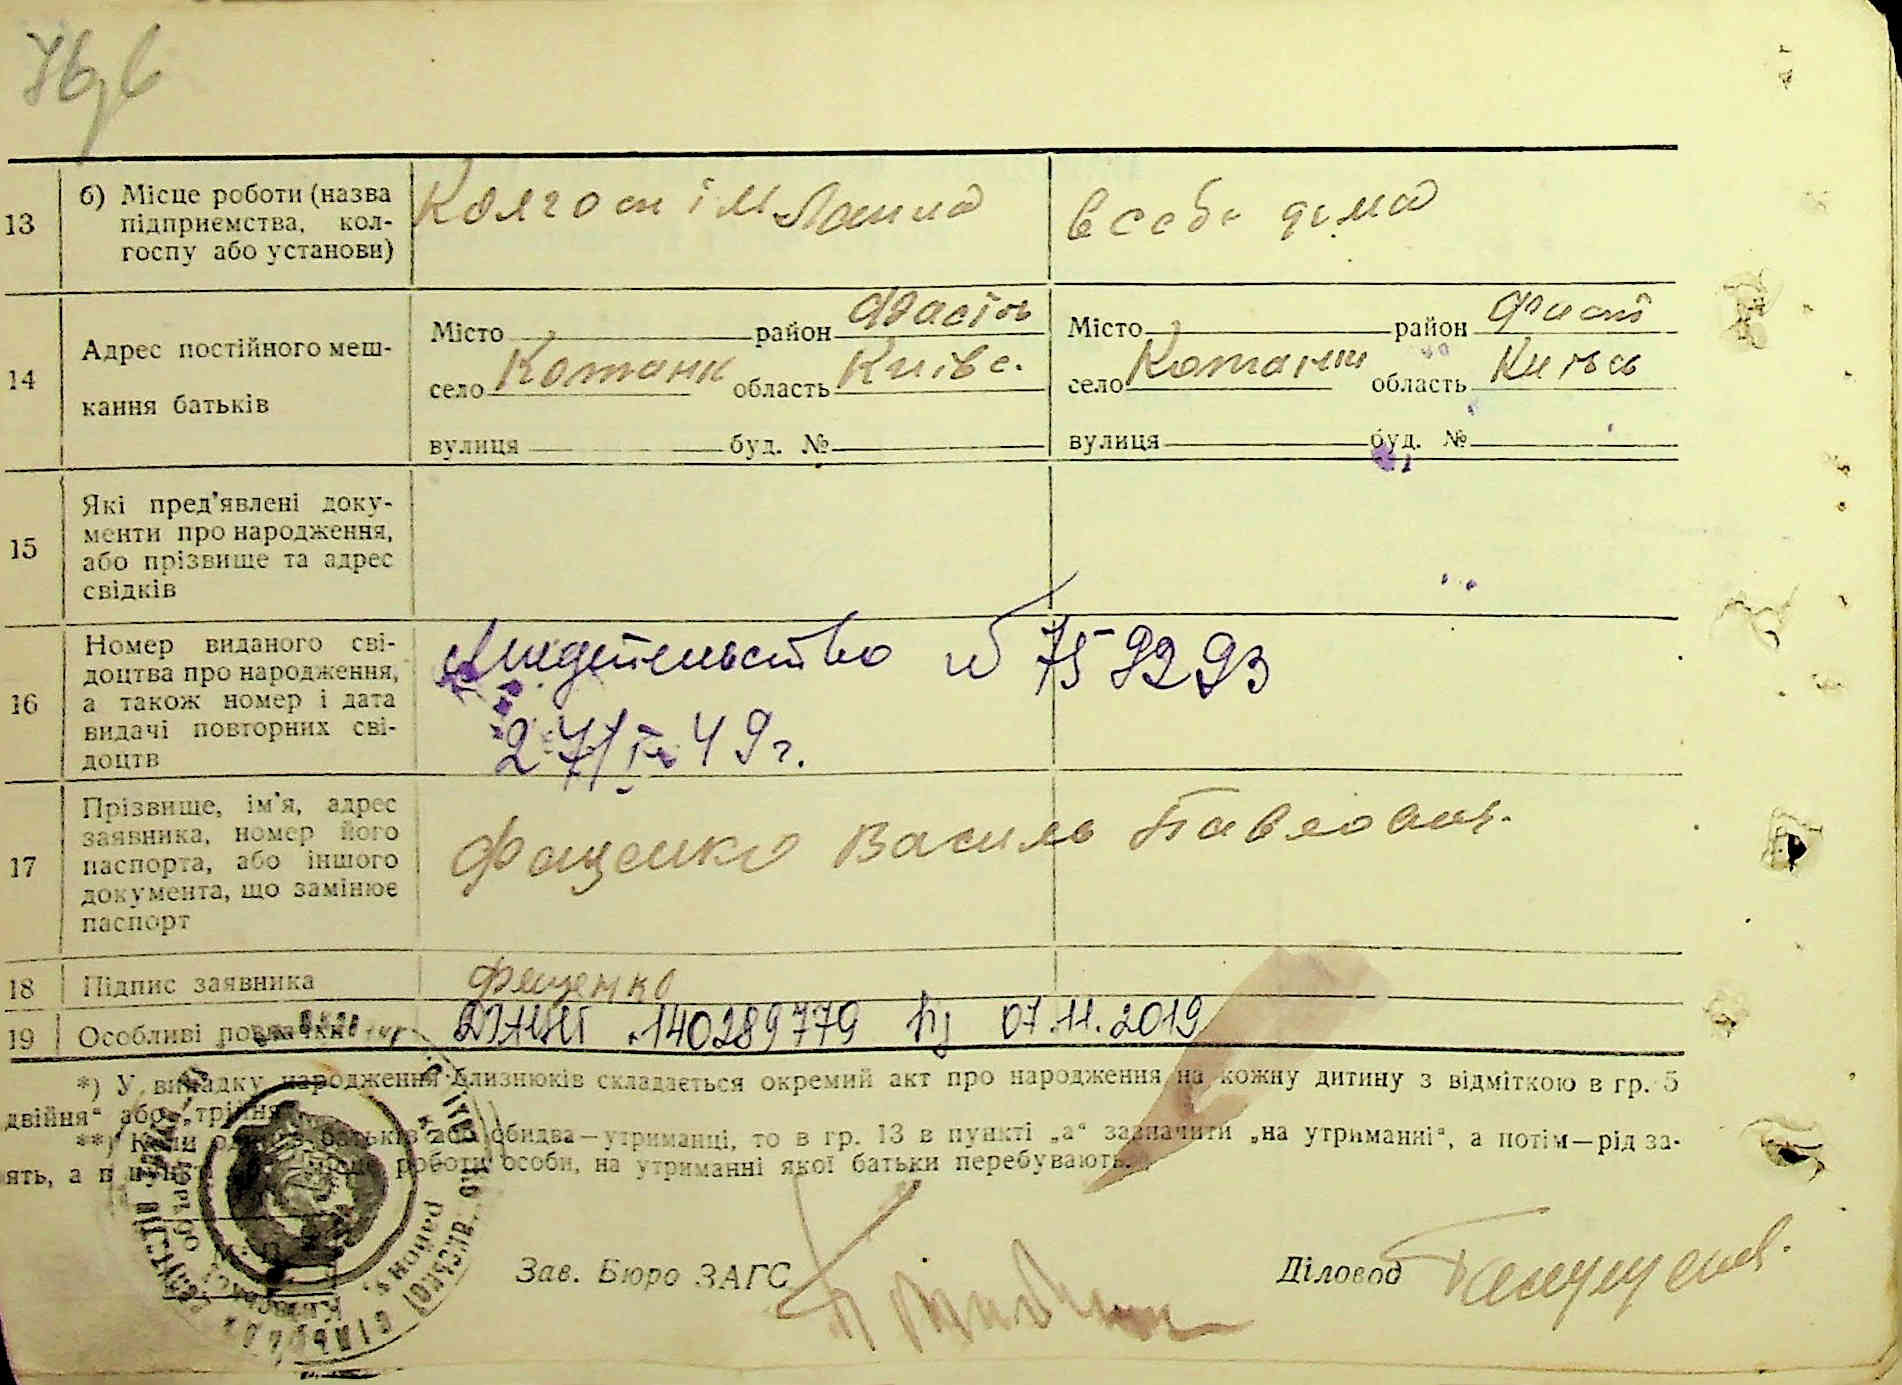 13
б) Місце роботи (назва
підприємства, кол-
госпу або установи)
Колгосп ім
в себе дома
14
Адрес постійного меш-
кання батьків
Місто район Фастів
село область Київс.
вулиця буд. №
Місто район Фасті
село область Київсь
вулиця буд. №
15
Які пред'явлені доку-
менти про народження,
або прізвище та адрес
свідків
16
Номер виданого сві-
доцтва про народження,
а також номер і дата
видачі повторних сві-
доцтв
свидетельство № 759293
49г.
17
Прізвище, ім'я, адрес
заявника, номер його
паспорта, або іншого
документа, що замінює
паспорт
Фащенко Василь Павлович.
18
Підпис заявника
Фащенко
19
Особливі 140289779 07.11.2019
*) У випадку народження близнюків складається окремий акт про народження на кожну дитину з відміткою в гр. 5
двійня" або „трійня
**) Коли один з батьків або обидва—утриманці, то в гр. 13 в пункті „а" зазначити „на утриманні", а потім—рід за-
ять, а в пункті роботи особи, на утриманні якої батьки перебувають.
Зав. Бюро ЗАГС
Діловод